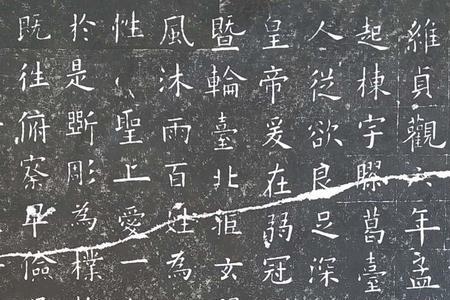 維貞觀六年孟
起棟宇膠葛臺
人從欲良足深
皇帝爰在弱冠
暨輪臺北拒玄
風沐雨百姓為
性聖上愛一
於是斲彫為樸
既往俯察卑儉